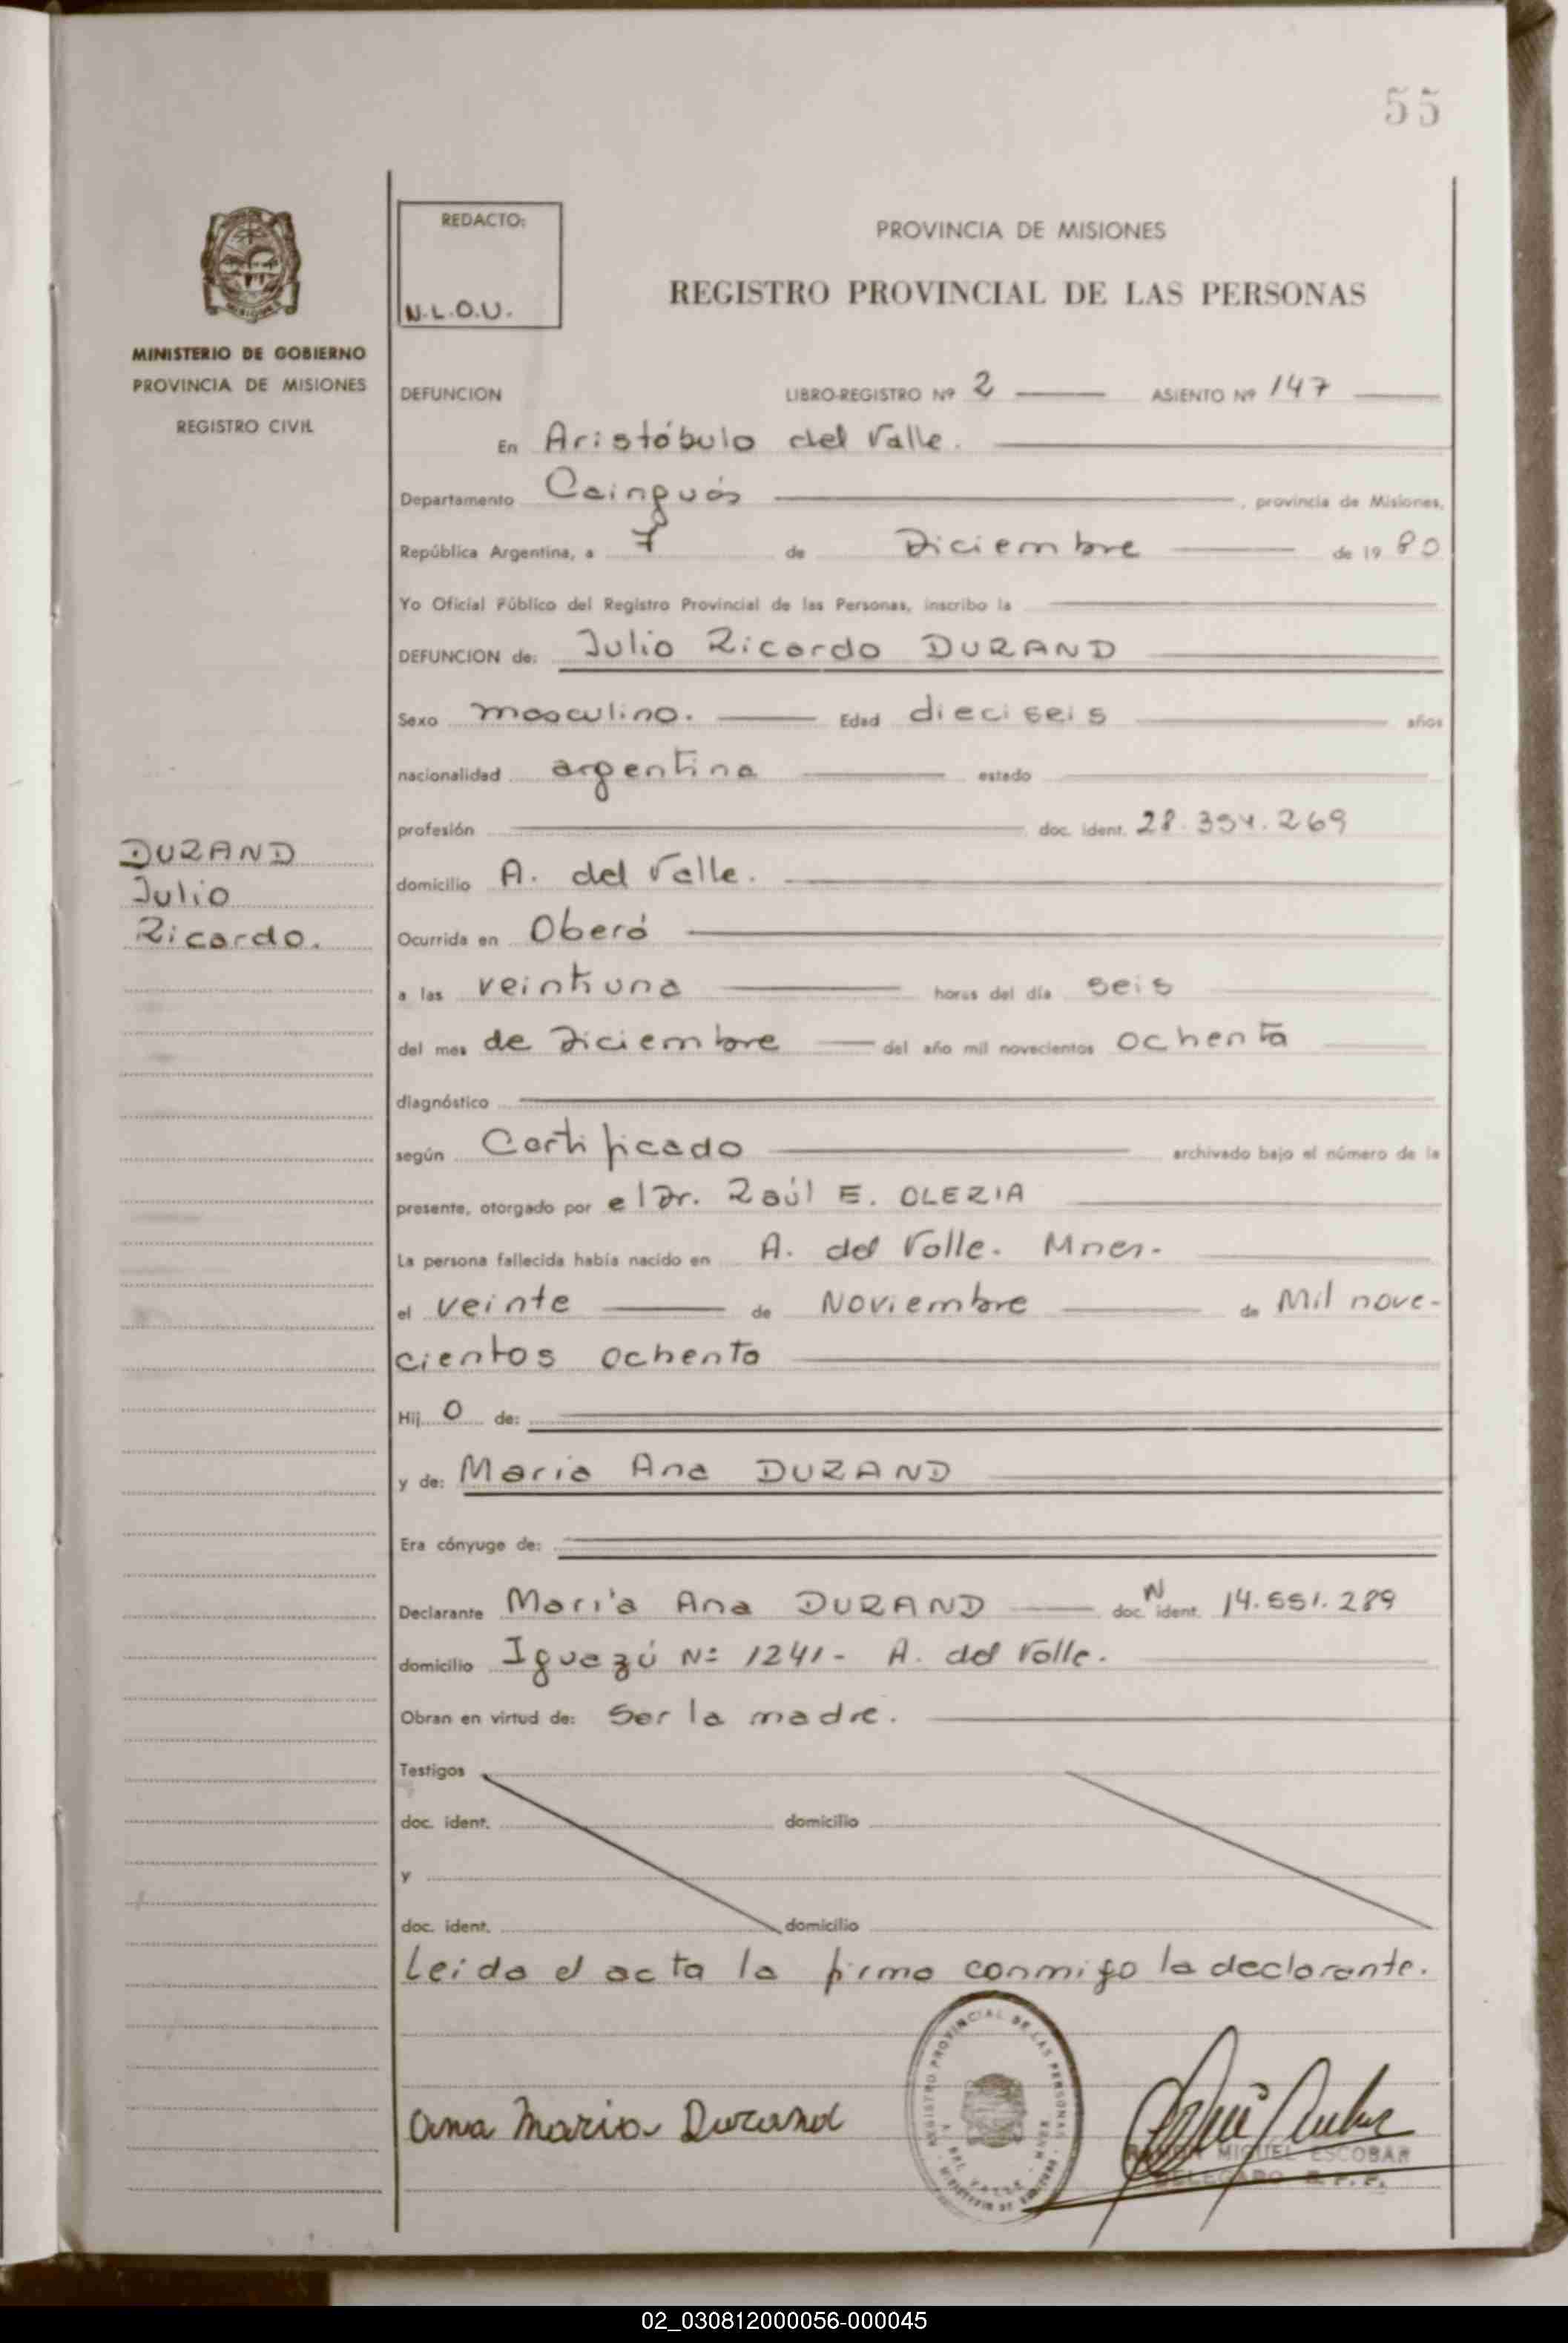 55
REDACTO:
N.L.O.U.
PROVINCIA DE MISIONES
REGISTRO PROVINCIAL DE LAS PERSONAS
MINISTERIO DE GOBIERNO
PROVINCIA DE MISIONES
REGISTRO CIVIL
DEFUNCION LIBRO-REGISTRO Nº 2 ASIENTO Nº 147
En Aristóbulo del Valle.
Departamento Cainguás , provincia de Misiones,
República Argentina, a 7 de Diciembre de 19 80
Yo Oficial Público del Registro Provincial de las Personas, inscribo la
DEFUNCION de: Julio Ricardo DURAND
Sexo masculino. Edad dieciseis años
nacionalidad argentina estado
profesión doc. ident. 28.354.269
DURAND
Julio
Ricardo.
domicilio A. del Valle.
Ocurrida en Oberá
a las veintiuna horas del día seis
del mes de Diciembre del año mil novecientos ochenta
diagnóstico
según Certificado archivado bajo el número de la
presente, otorgado por el Dr. Raúl E. OLERIA
La persona fallecida había nacido en A. del Valle. Mnes.
el veinte de Noviembre de Mil nove-
cientos ochenta
Hij o de:
y de: Maria Ana DURAND
Era cónyuge de:
Declarante María Ana DURAND doc. N ident. 14.551.289
domicilio Iguazú Nº 1241- A. del Valle.
Obran en virtud de: Ser la madre.
Testigos
doc. ident. domicilio
y
doc. ident. domicilio
Leida el acta la firma conmigo la declarante.
REGISTRO PROVINCIAL DE LAS PERSONAS
Ana Maria Durand
MIGUEL ESCOBAR
DELEGADO R.P.P.
02_030812000056-000045